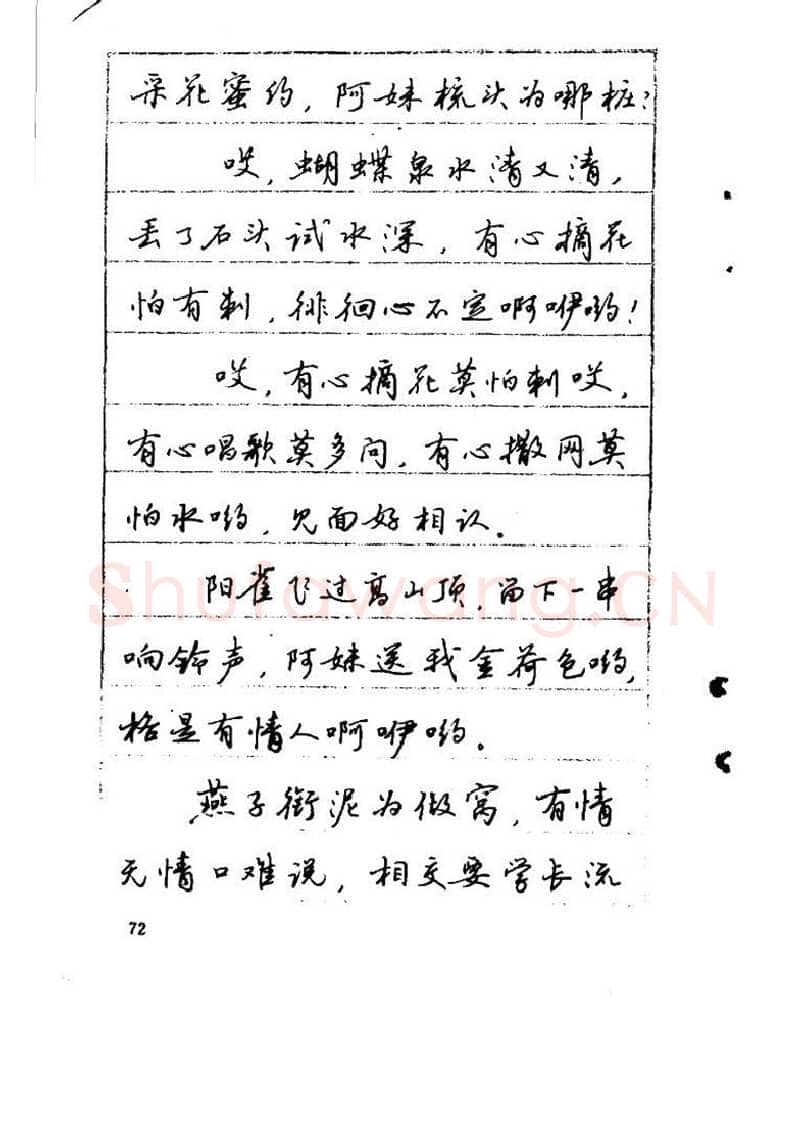 采花蜜约，阿妹梳头为哪桩？
哎，蝴蝶泉水清又清，
丢了石头试水深，有心摘花
怕有刺，徘徊心不定啊咿哟！
哎，有心摘花莫怕刺哎，
有心唱歌莫多问，有心撒网莫
怕水哟，见面好相认。
阳雀飞过高山顶，留下一串
响铃声，阿妹送我金荷包哟，
格是有情人啊咿哟。
燕子衔泥为做窝，有情
无情口难说，相交要学长流
72
Shufawang.CN